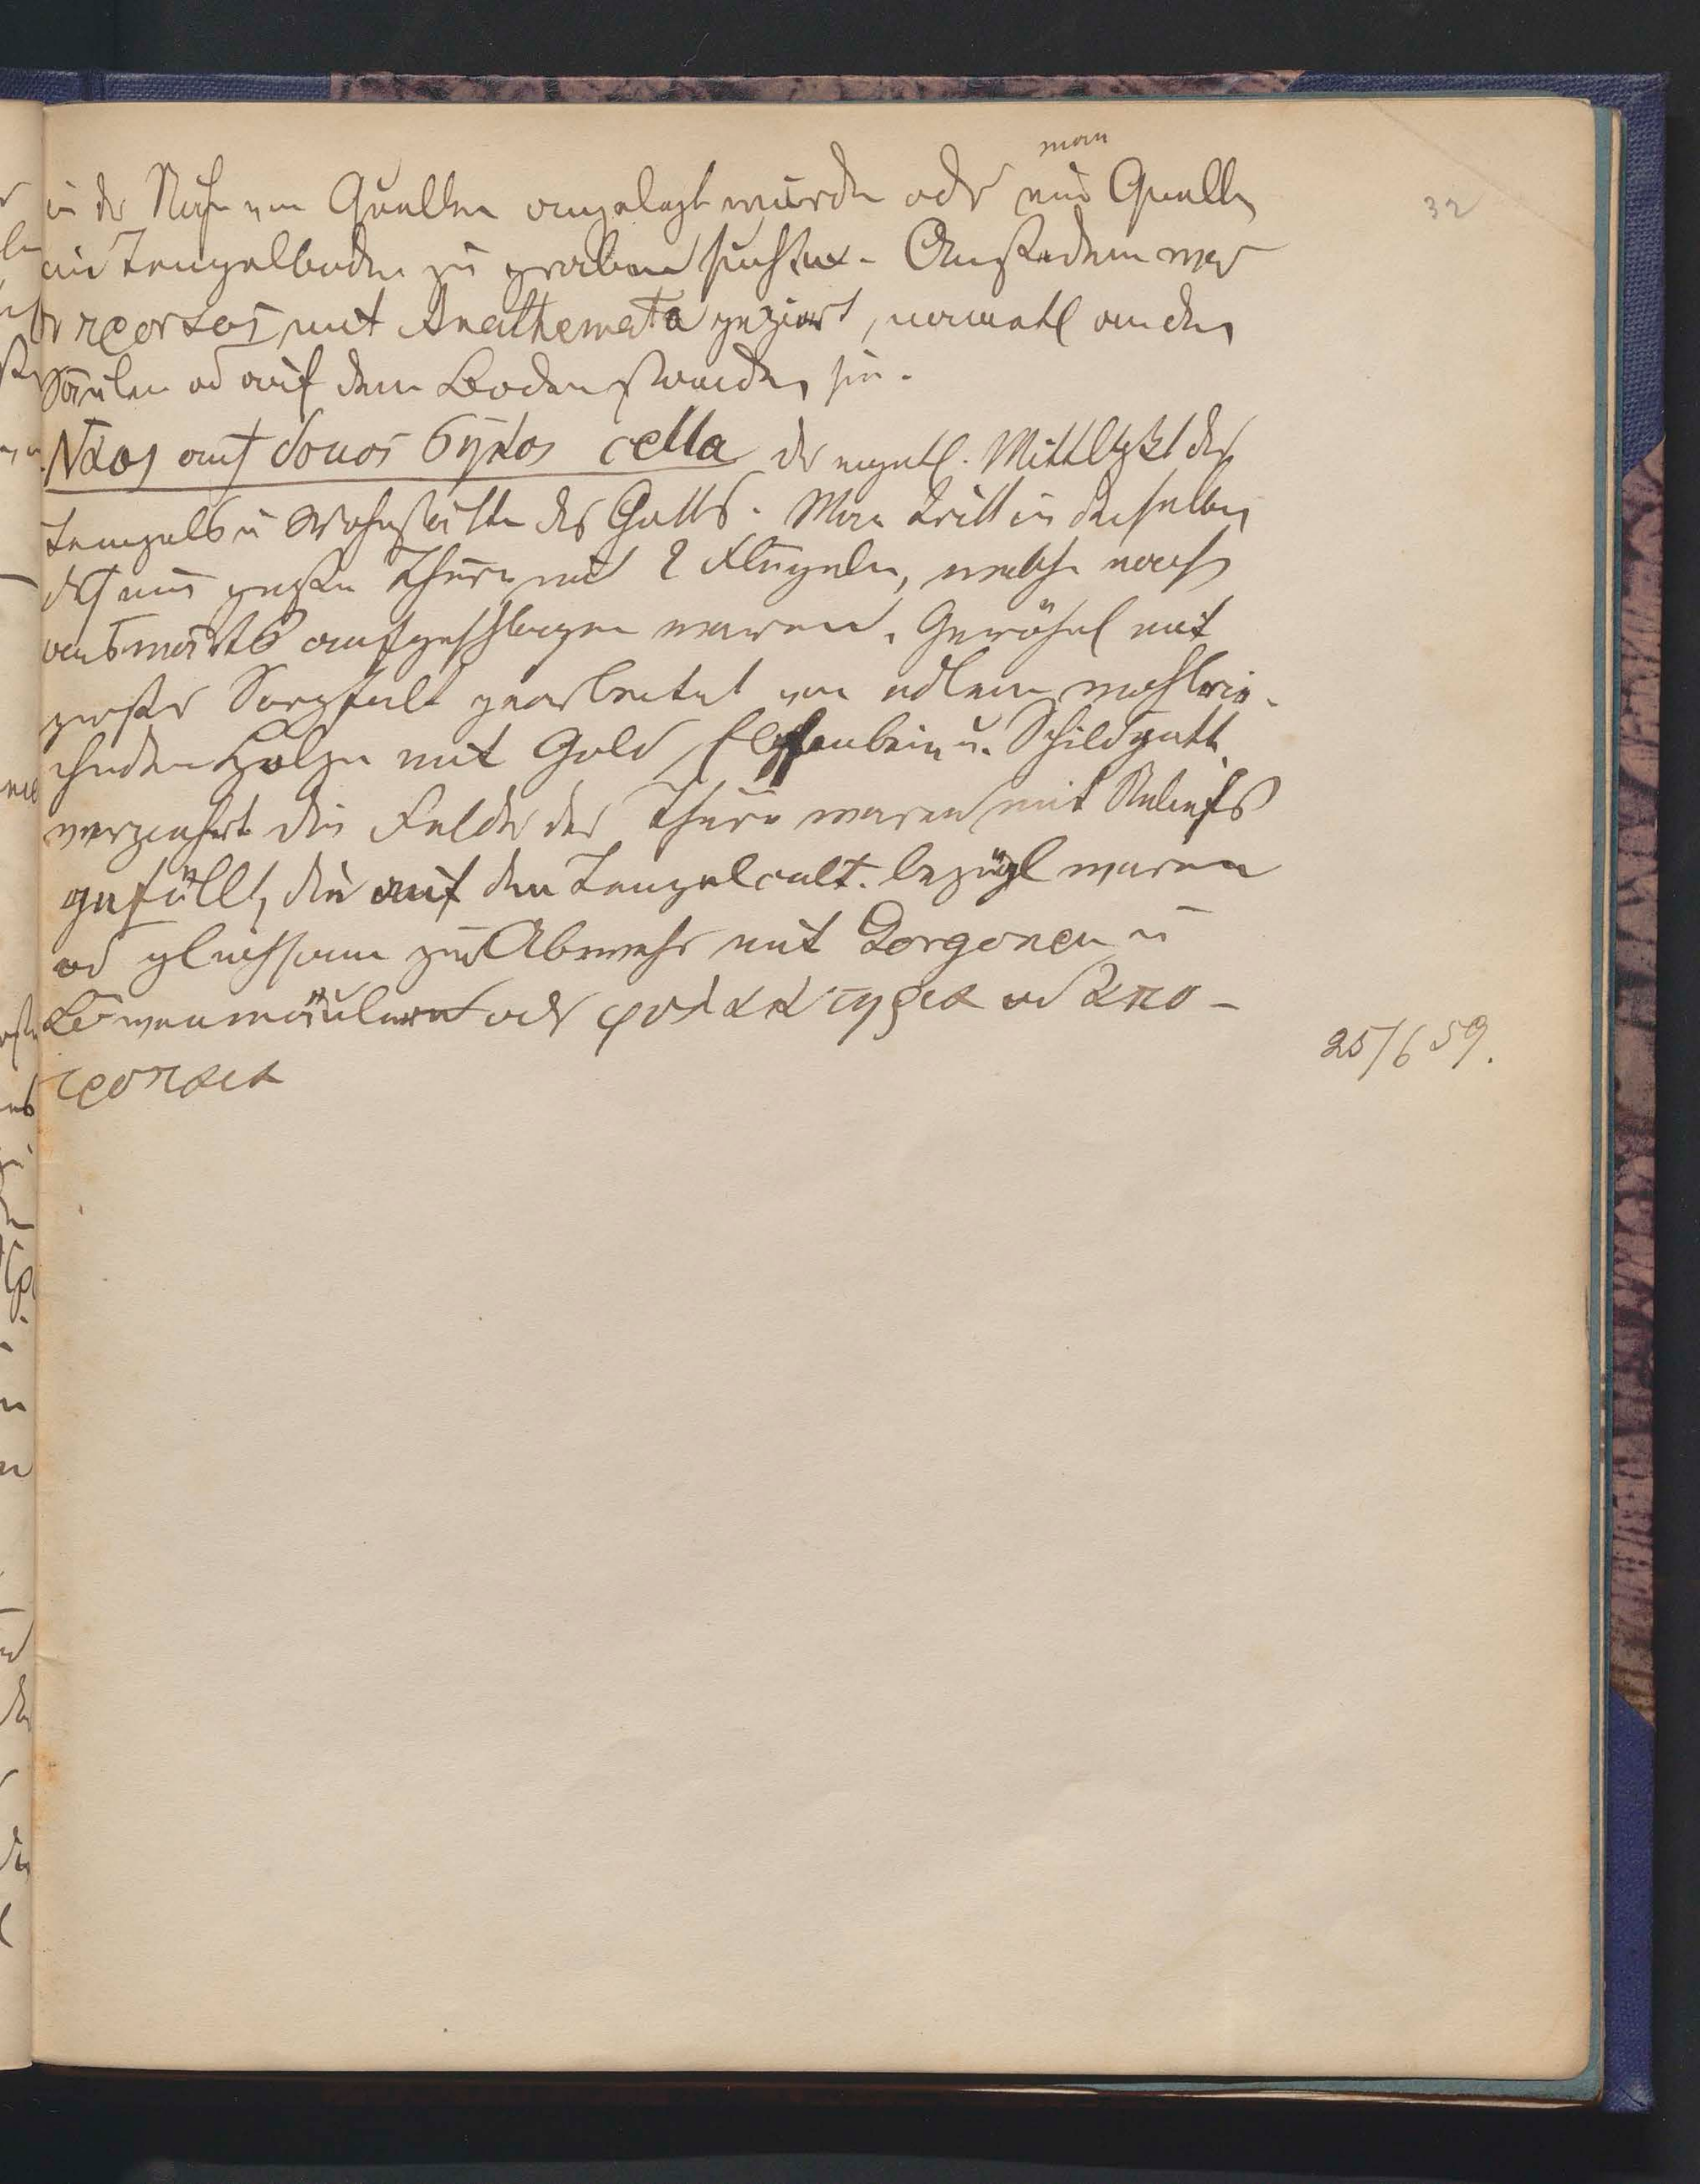 man
in der Nähe von Quellen angelegt wurden oder eine Quelle
im Tempelboden zu graben suchte. Außerdem war
der προναος mit Anathemata geziert, namentl an den
Säulen od auf dem Boden standen sie.
Ναος auch δομος σηκος cella der eigentl. Mittelpkt des
Tempels u Wohnstätte des Gottes. Man tritt in dieselbe
dch eine große Thüre mit 2 Flügeln, welche nach
auswärts aufgeschlagen waren. Gewöhnl mit
großer Sorgfalt gearbeitet von edlem, wohlrie-
chenden Holze mit Gold, Elfenbein u. Schildpatt
verziehrt die Felder der Thüre waren mit Reliefs
gefüllt, die auf den Tempelcult. bezügl waren
od gleichsam zur Abwehr mit Gorgonen u
Löwenmäulern oder φυλακτηρια od απο-
τροπαια
32
25/6 59.